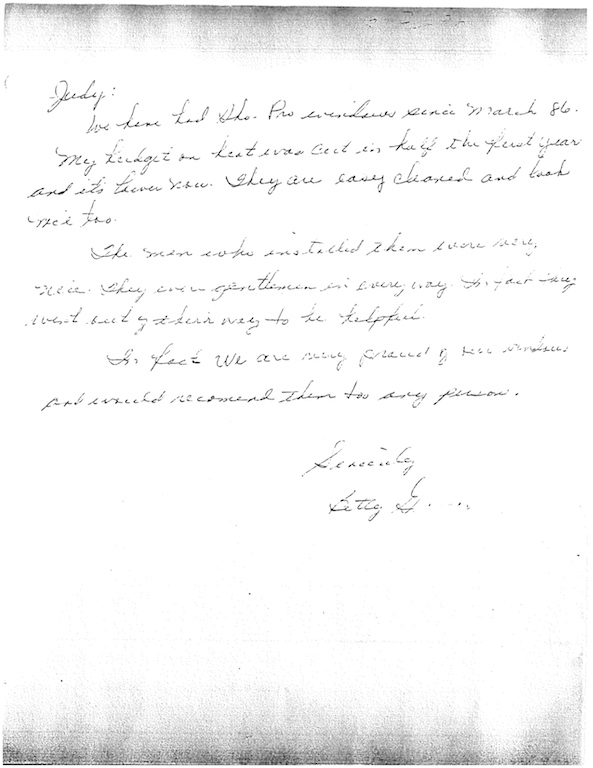 Judy:
We have had Tho. Pro windows since March 86.
My budget on heat was cut in half the first year
and its lower now. They are easy cleaned and look
nice too.
The men who installed them were very
nice. They were gentlemen in every way. In fact they
went out of their way to be helpful.
In fact we are very proud of our windows
and would recomend them too any person.
Sincerely
Betty G